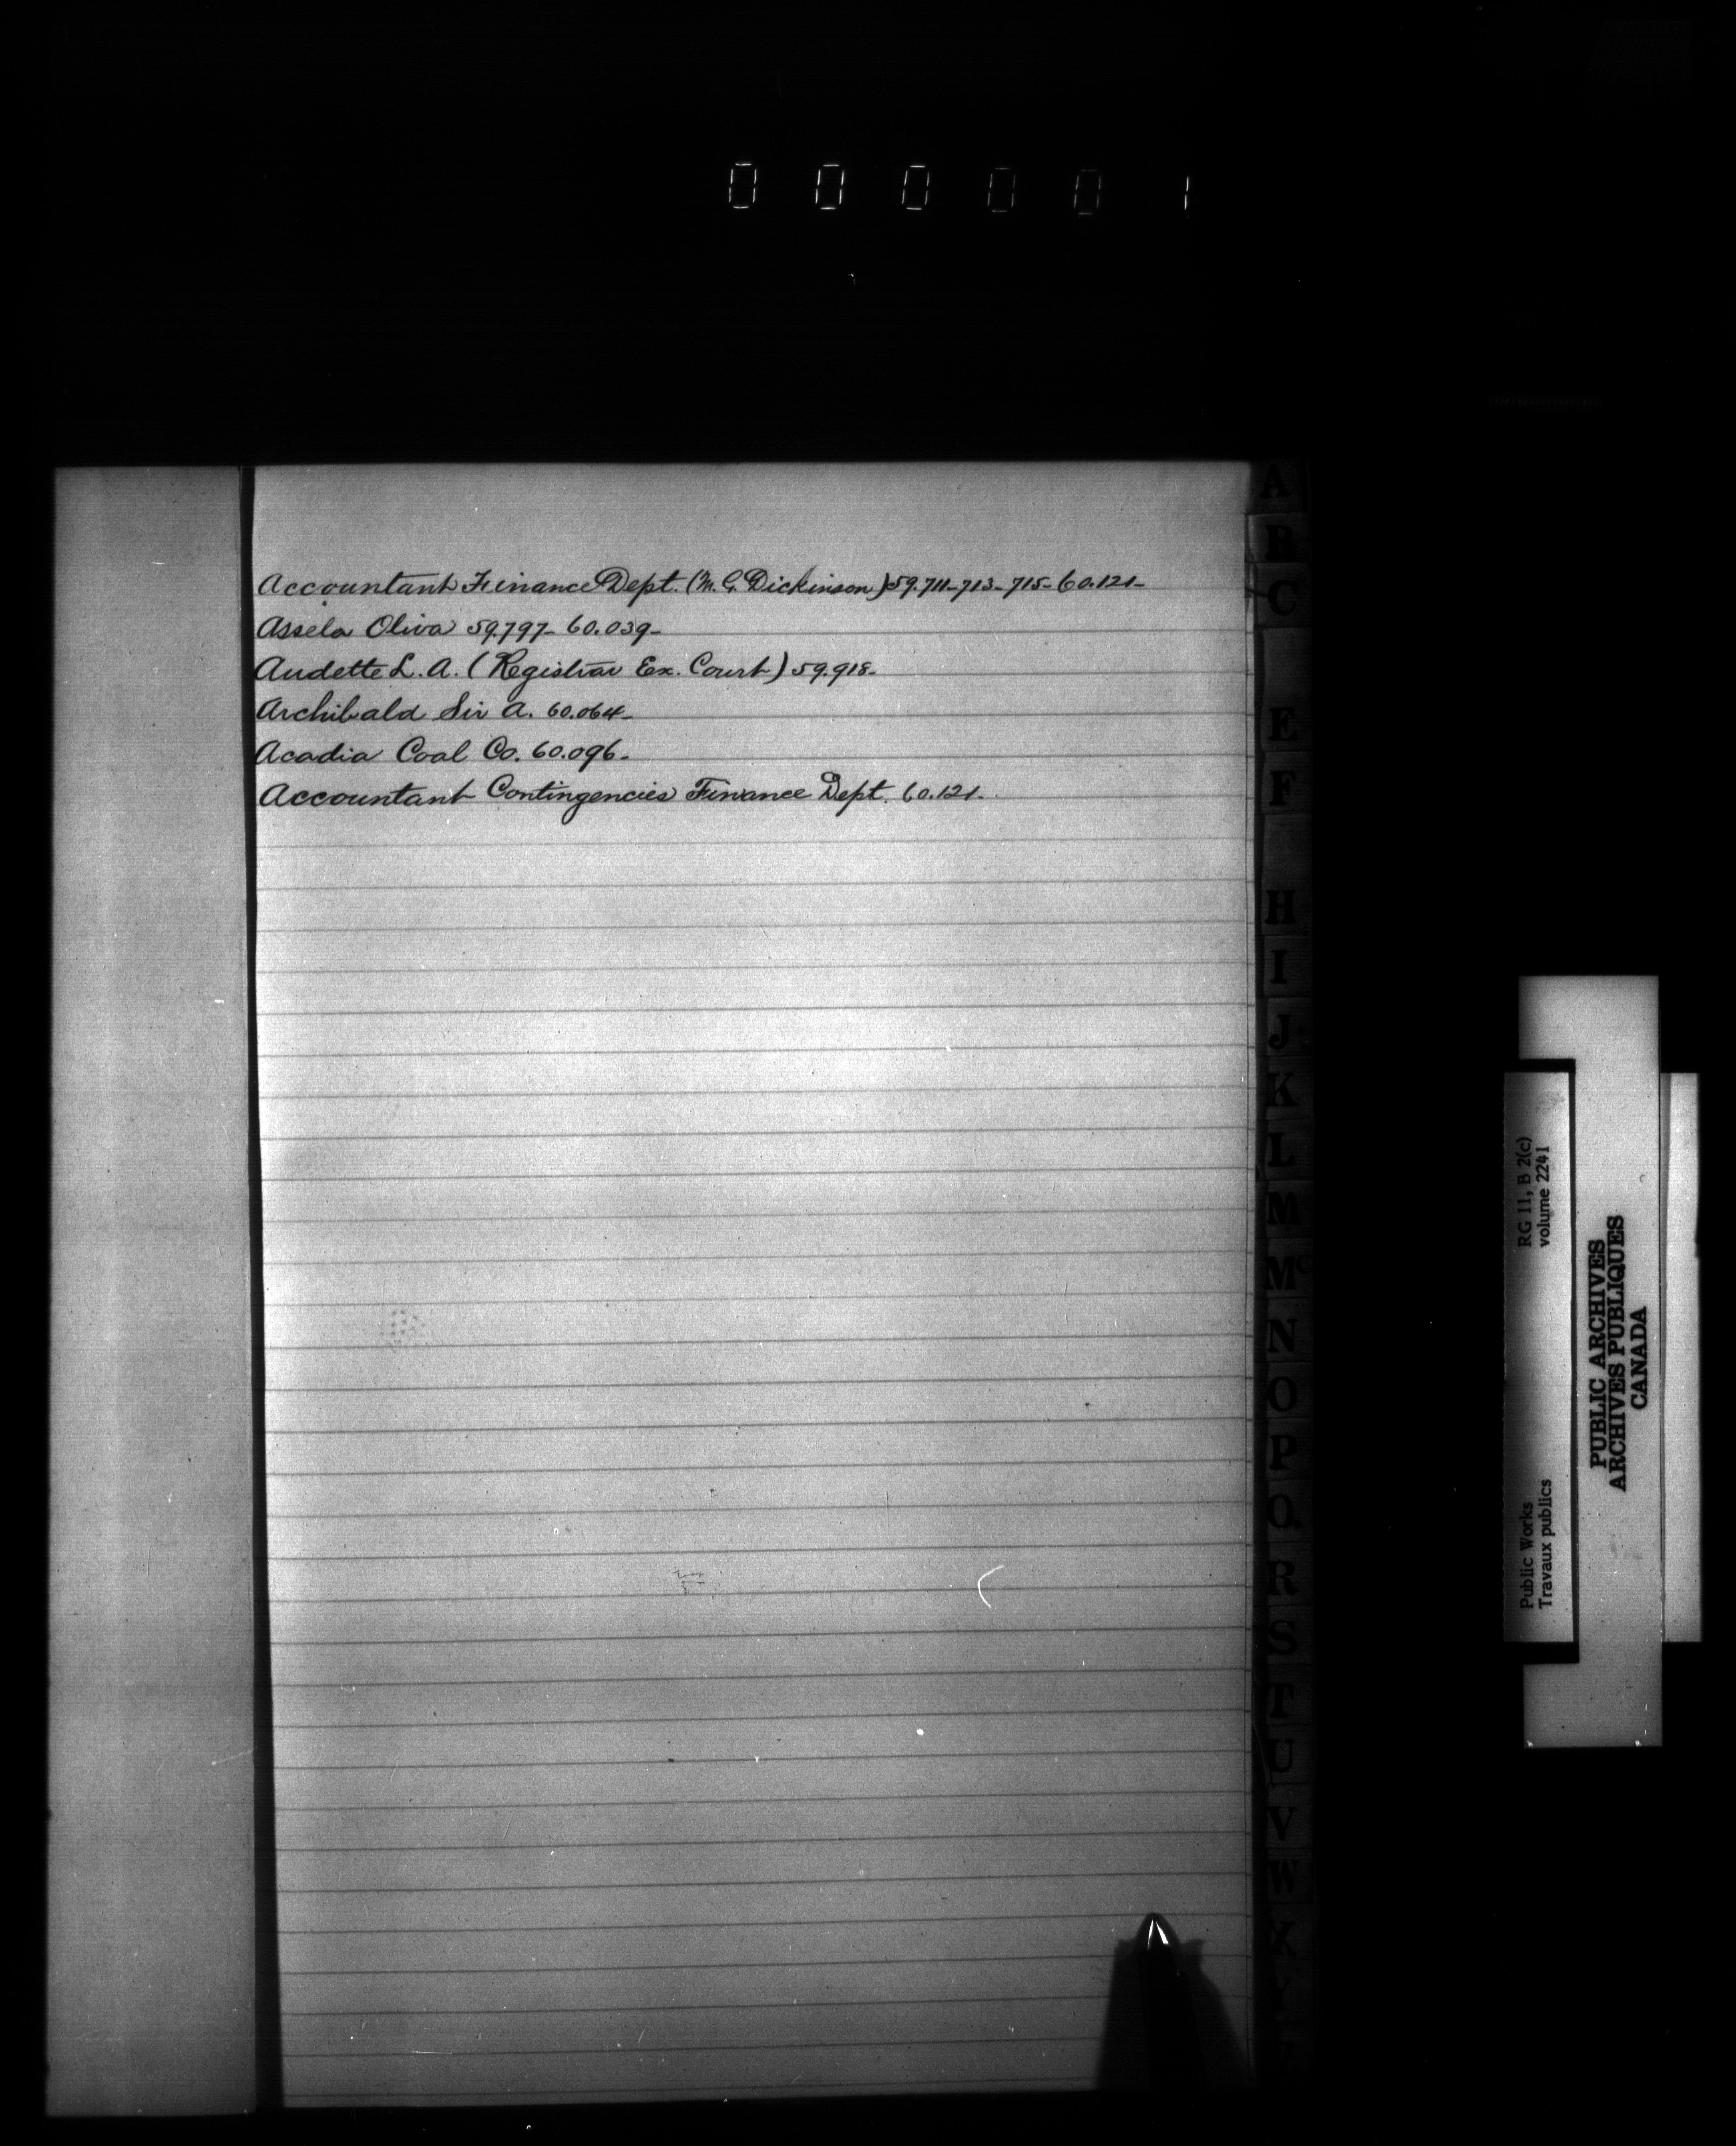 000001
Accountant Finance Dept. (M. G. Dickinson) 59.711-713-715-60.121-
Assela Oliva 59.797-60.039-
Audette L. A. (Registrar Ex. Court) 59.918-
Archibald Sir A. 60.064-
Acadia Coal Co. 60.096-
Accountant Contingencies Finance Dept. 60.121-
A
B
C
E
F
H
I
J
K
L
M
Mc
N
O
P
Q
R
S
T
U
V
W
X
Y
RG 11, B 2(c)
volume 2241
Public Works
Travaux publics
PUBLIC ARCHIVES
ARCHIVES PUBLIQUES
CANADA